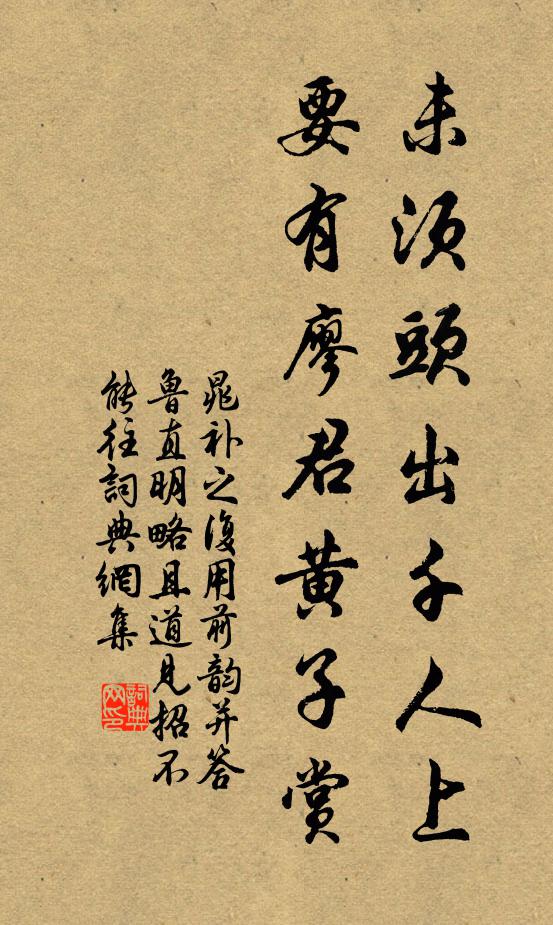 未須頭出千人上
要有廖君黄子賞
晁补之復用前韵并答
魯直明略且道見招不
能往詞典網集
詞典
网印